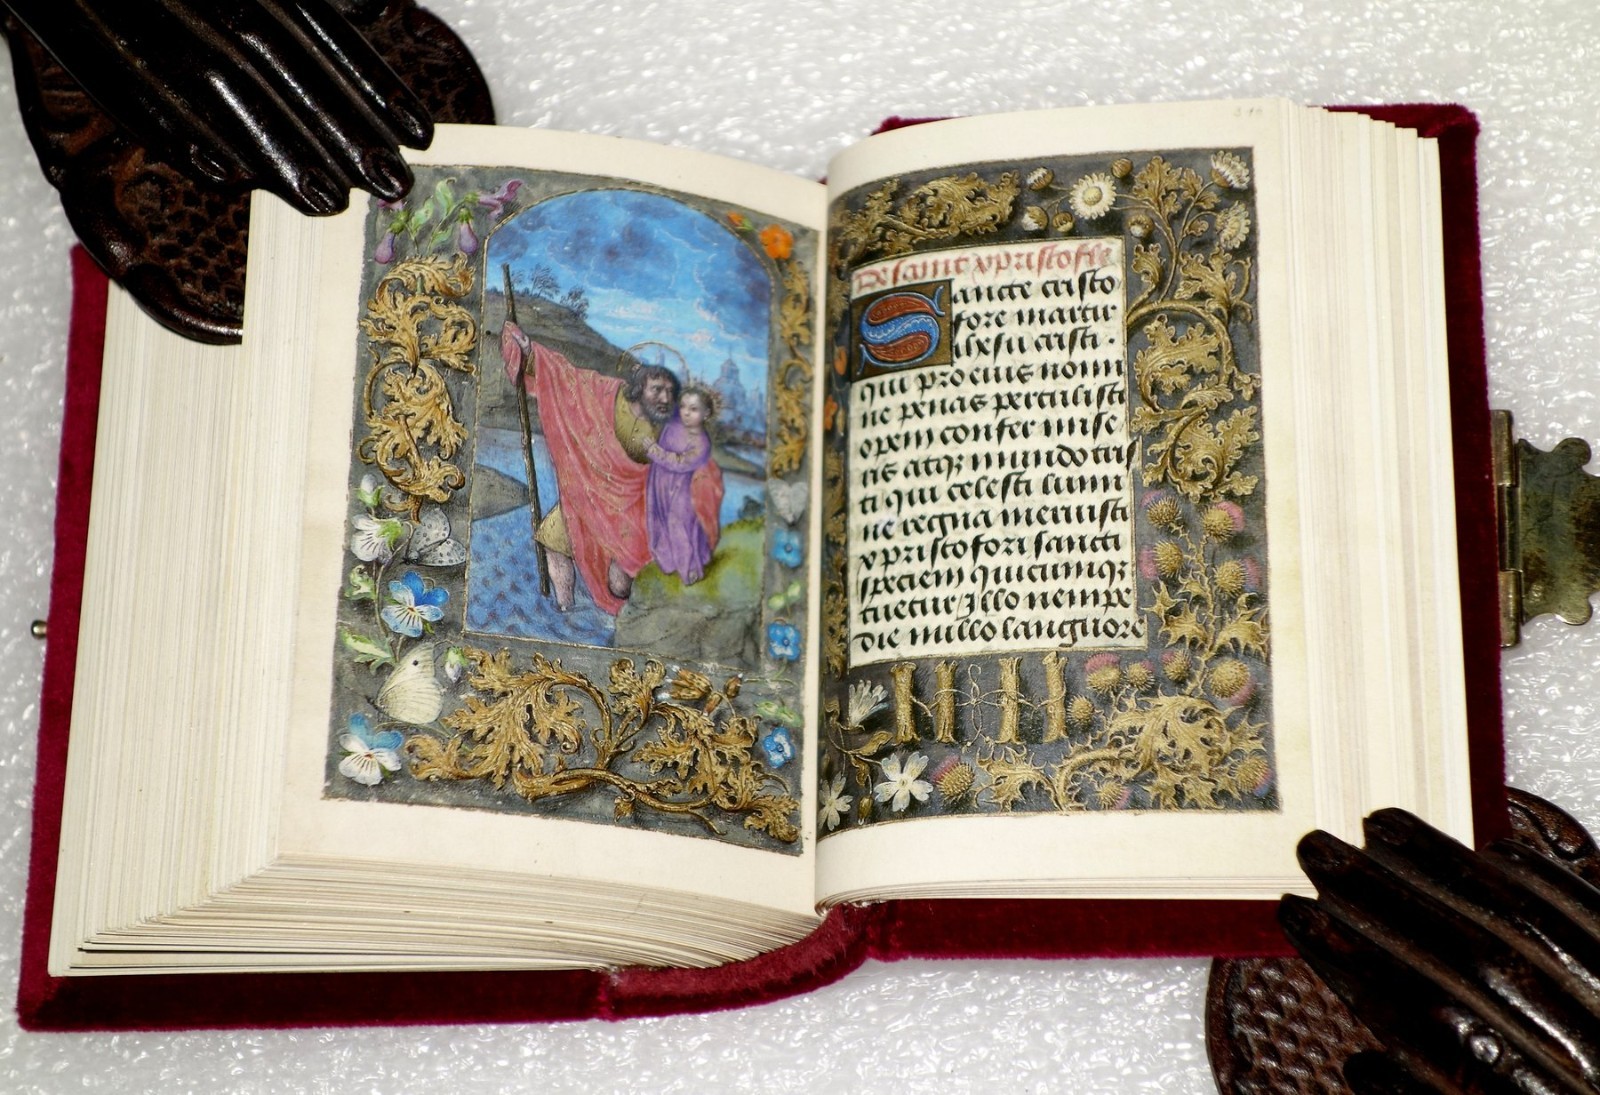 De saint xpristofle
Sancte cristo
fore martir
ihesu cristi .
qui pro eius nomi
ne penas pertulisti
opem confer mise
ris atqz mundo tris
ti qui celesti lumi
ne regna meruisti
xpristofori sancti
speciem quicumqz
tuetur / Illo nempe
die nullo languore